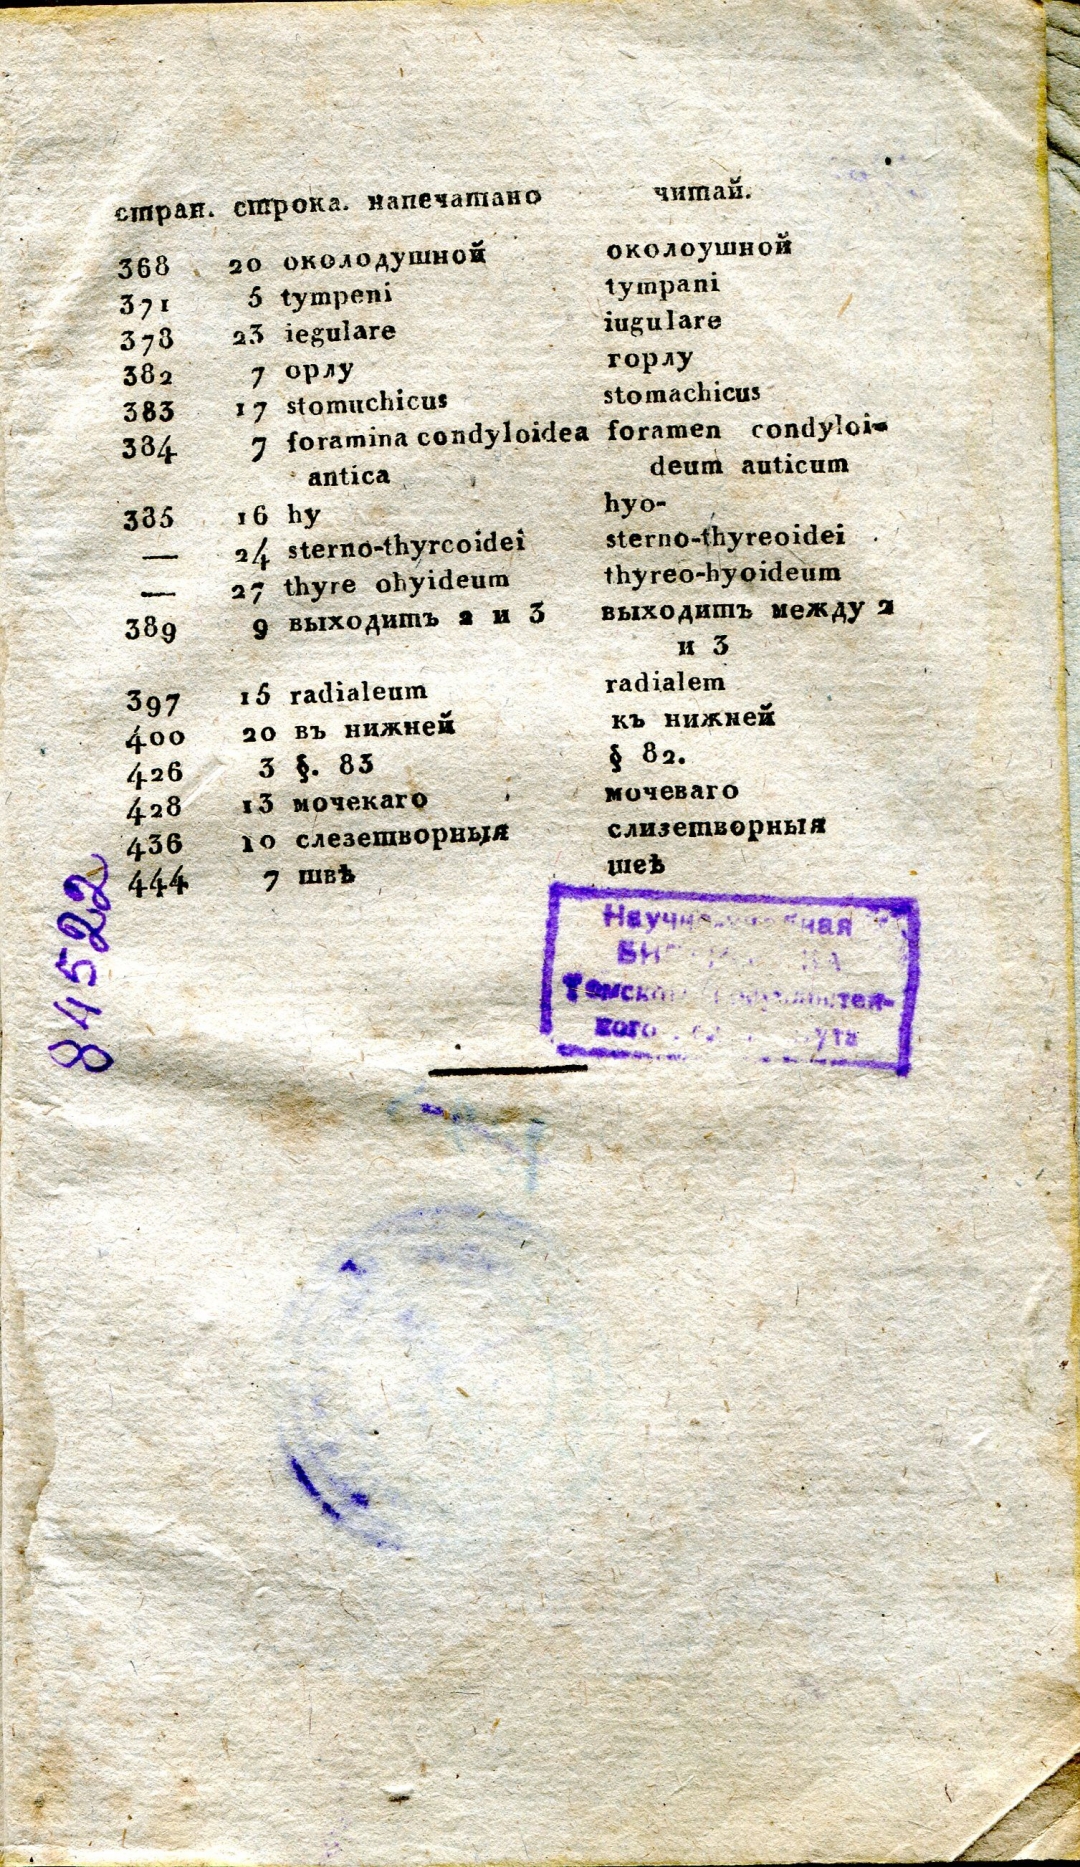 стран. строка. напечатано читай.
368 20 околодушной околоушной
371 5 tympeni tympani
378 23 iegulare iugulare
382 7 орлу горлу
383 17 stomuchicus stomachicus
384 7 foramina condyloidea foramen condyloi-
antica deum auticum
385 16 hy hyo-
— 24 sterno-thyrcoidei sterno-thyreoidei
— 27 thyre ohyideum thyreo-hyoideum
389 9 выходитъ 2 и 3 выходитъ между 2
и 3
397 15 radialeum radialem
400 20 въ нижней къ нижней
426 3 §. 83 § 82.
428 13 мочекаго мочеваго
436 10 слезетворныя слизетворныя
444 7 швѣ шеѣ
84522